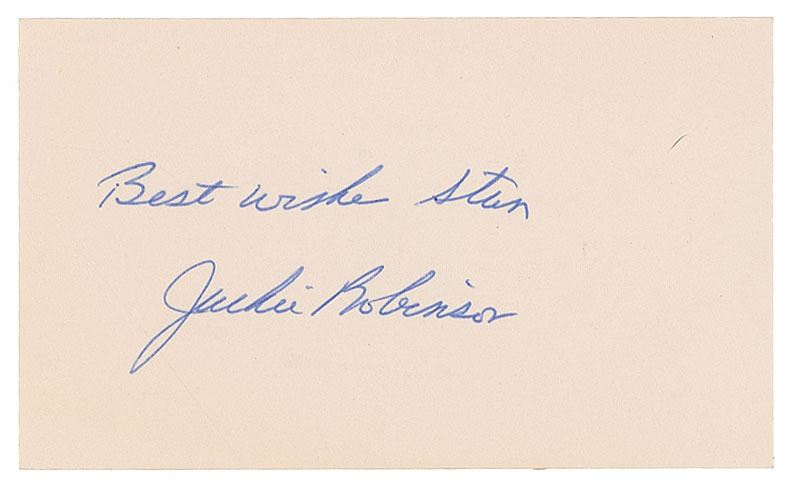 Best wishe Stan
Jackie Robinson